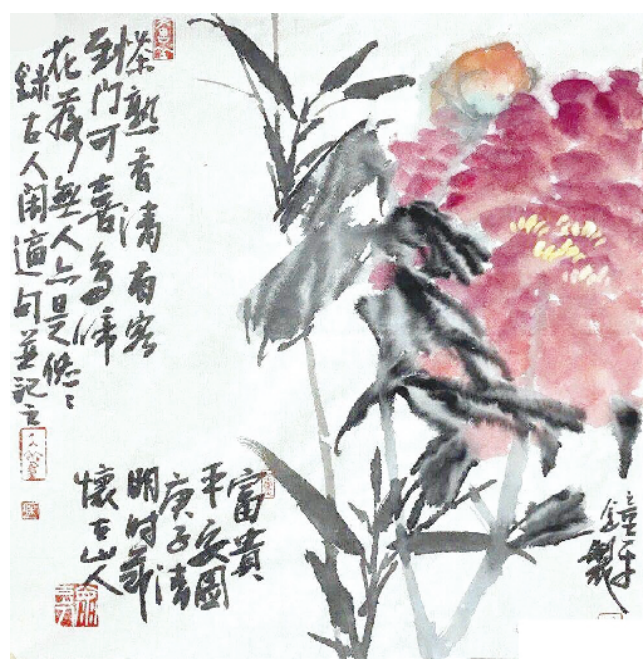 茶熟香清有客
到门可喜鳥啼
花落無人亦是悠々
録古人闲適句並記之
富貴
平安圖
庚子清
明时節
懷古山人
鐘
製